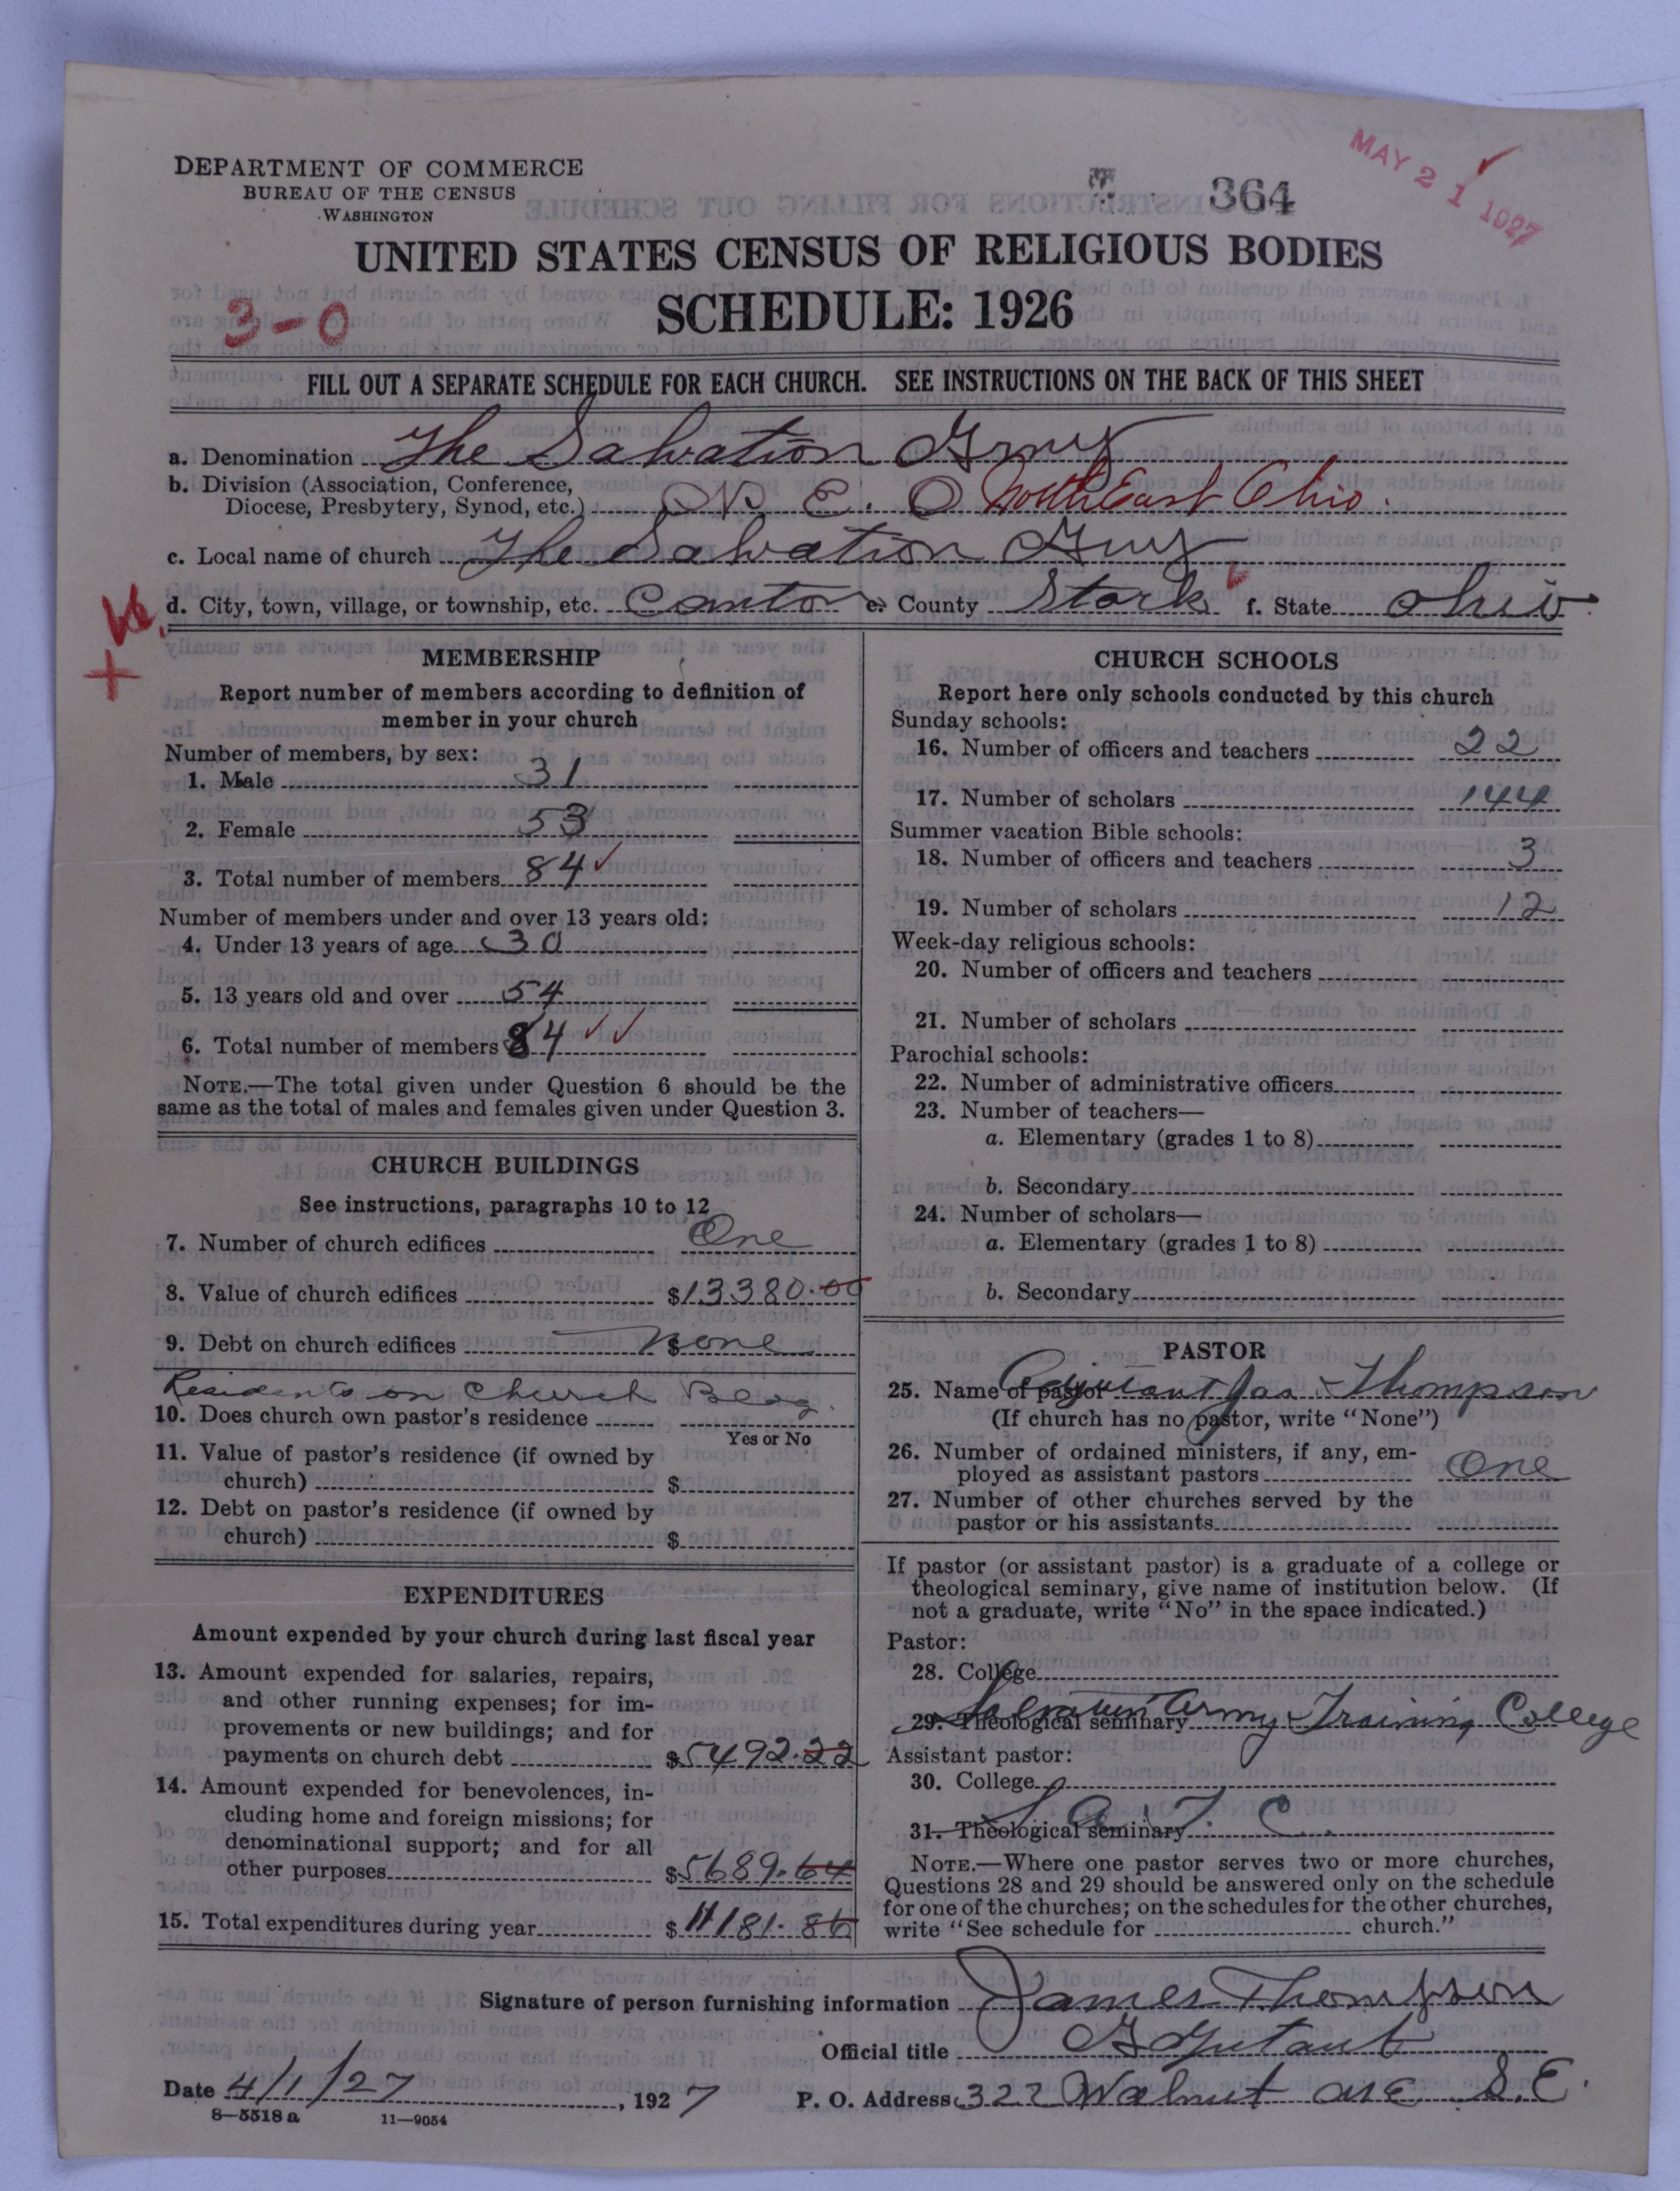 DEPARTMENT OF COMMERCE
BUREAU OF THE CENSUS
WASHINGTON
364
MAY 21 1927
UNITED STATES CENSUS OF RELIGIOUS BODIES
SCHEDULE: 1926
3-0
FILL OUT A SEPARATE SCHEDULE FOR EACH CHURCH. SEE INSTRUCTIONS ON THE BACK OF THIS SHEET
a. Denomination The Salvation Army
b. Division (Association, Conference,
Diocese, Presbytery, Synod, etc.) N. E. O North East Ohio.
c. Local name of church The Salvation Army
d. City, town, village, or township, etc. Canton e. County Stark f. State Ohio
MEMBERSHIP
Report number of members according to definition of
member in your church
Number of members, by sex:
1. Male 31
2. Female 53
3. Total number of members 84
Number of members under and over 13 years old:
4. Under 13 years of age 30
5. 13 years old and over 54
6. Total number of members 84
NOTE.—The total given under Question 6 should be the
same as the total of males and females given under Question 3.
CHURCH BUILDINGS
See instructions, paragraphs 10 to 12
7. Number of church edifices One
8. Value of church edifices $13380.00
9. Debt on church edifices $ none
Residents on Church Bldg.
10. Does church own pastor's residence
Yes or No
11. Value of pastor's residence (if owned by
church) $
12. Debt on pastor's residence (if owned by
church) $
EXPENDITURES
Amount expended by your church during last fiscal year
13. Amount expended for salaries, repairs,
and other running expenses; for im-
provements or new buildings; and for
payments on church debt $5492.22
14. Amount expended for benevolences, in-
cluding home and foreign missions; for
denominational support; and for all
other purposes $5689.64
15. Total expenditures during year $11181.86
CHURCH SCHOOLS
Report here only schools conducted by this church
Sunday schools:
16. Number of officers and teachers 22
17. Number of scholars 144
Summer vacation Bible schools:
18. Number of officers and teachers 3
19. Number of scholars 12
Week-day religious schools:
20. Number of officers and teachers
21. Number of scholars
Parochial schools:
22. Number of administrative officers
23. Number of teachers—
a. Elementary (grades 1 to 8)
b. Secondary
24. Number of scholars—
a. Elementary (grades 1 to 8)
b. Secondary
PASTOR
25. Name of pastor Adjutant Jas Thompson
(If church has no pastor, write "None")
26. Number of ordained ministers, if any, em-
ployed as assistant pastors One
27. Number of other churches served by the
pastor or his assistants
If pastor (or assistant pastor) is a graduate of a college or
theological seminary, give name of institution below. (If
not a graduate, write "No" in the space indicated.)
Pastor:
28. College
29. Theological seminary Salvation Army Training College
Assistant pastor:
30. College
31. Theological seminary S. A. T. C.
NOTE.—Where one pastor serves two or more churches,
Questions 28 and 29 should be answered only on the schedule
for one of the churches; on the schedules for the other churches,
write "See schedule for church."
Signature of person furnishing information James Thompson
Official title Adjutant
Date 4/1/27, 1927 P. O. Address 322 Walnut ave S.E.
8—5518 a 11—9054